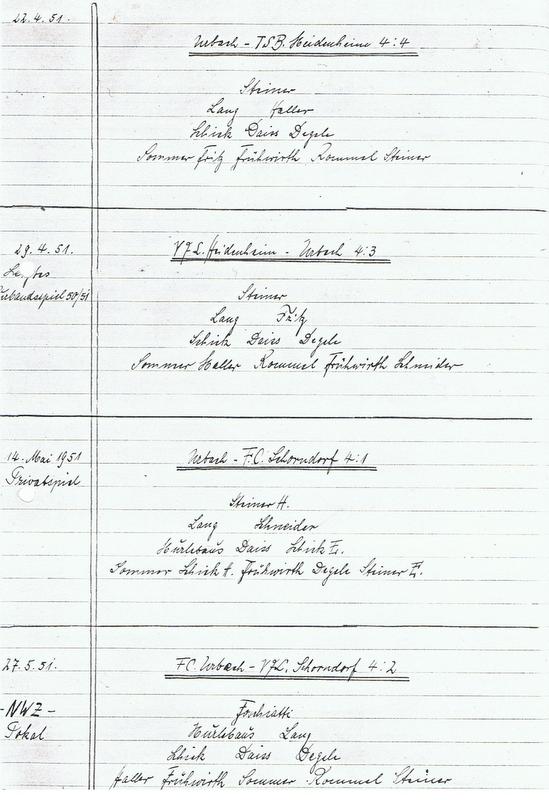 22.4.51.
Urbach - T.S.B. Heidenheim 4:4
Steiner
Lang Haller
Schiek Daiss Degele
Sommer Fritz Frühwirth Rommel Steiner
29.4.51.
Letztes
Verbandsspiel 50/51
V.f.L. Heidenheim - Urbach 4:3
Steiner
Lang Fritz
Schiek Daiss Degele
Sommer Haller Rommel Frühwirth Schneider
14. Mai 1951
Privatspiel
Urbach - F.C. Schorndorf 4:1
Steiner H.
Lang Schneider
Hurlebaus Daiss Schiek E.
Sommer Schiek A. Frühwirth Degele Steiner E.
27.5.51.
- NWZ -
Pokal
F.C. Urbach - V.f.L. Schorndorf 4:2
Foschiatti
Hurlebaus Lang
Schiek Daiss Degele
Haller Frühwirth Sommer Rommel Steiner